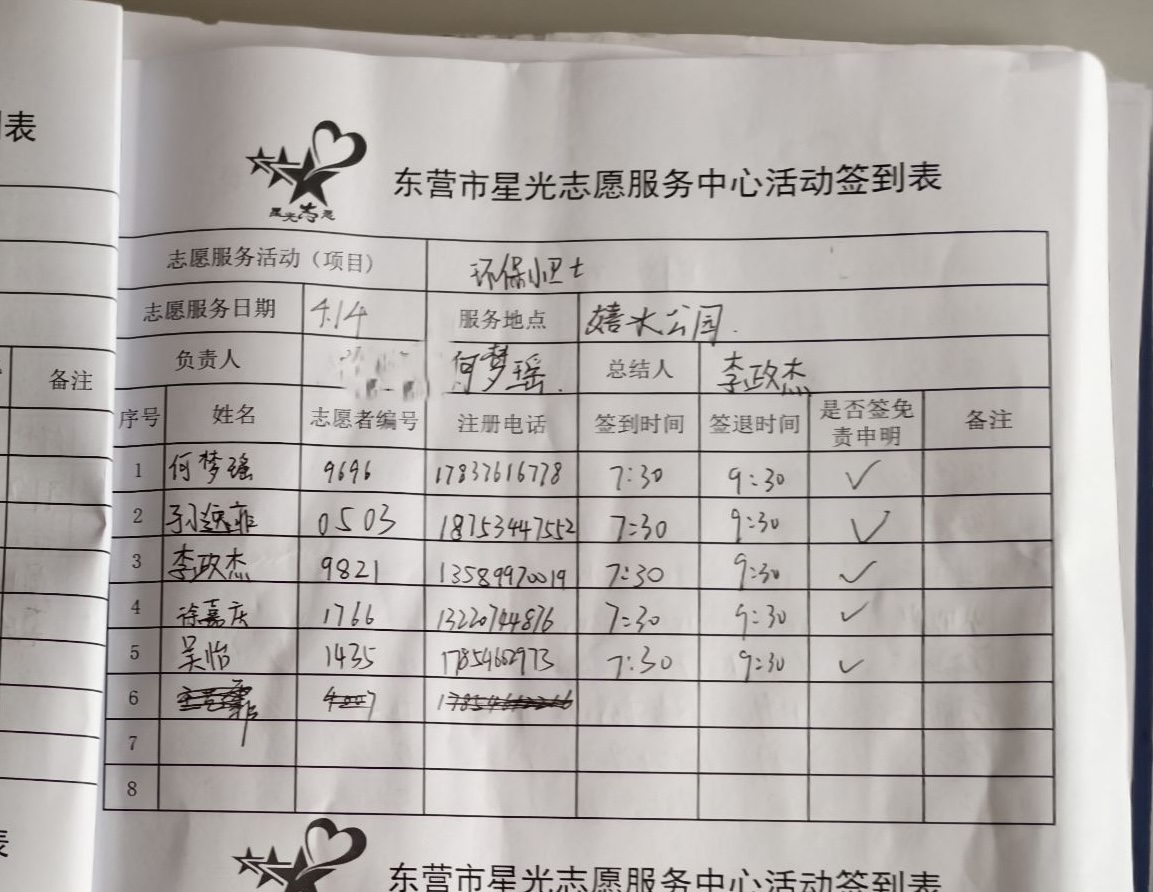 到表
备注
表
星光志愿
东营市星光志愿服务中心活动签到表
志愿服务活动（项目） 环保小卫士
志愿服务日期 4.14 服务地点 嬉水公园.
负责人 何梦瑶. 总结人 李政杰
序号 姓名 志愿者编号 注册电话 签到时间 签退时间 是否签免责申明 备注
1 何梦瑶 9696 17837616778 7:30 9:30 ✓
2 0503 18753447552 7:30 9:30 ✓
3 李政杰 9821 13589970019 7:30 9:30 ✓
4 徐嘉庆 1766 13220744876 7:30 9:30 ✓
5 吴怡 1435 17854602973 7:30 9:30 ✓
6
7
8
东营市星光志愿服务中心活动签到表